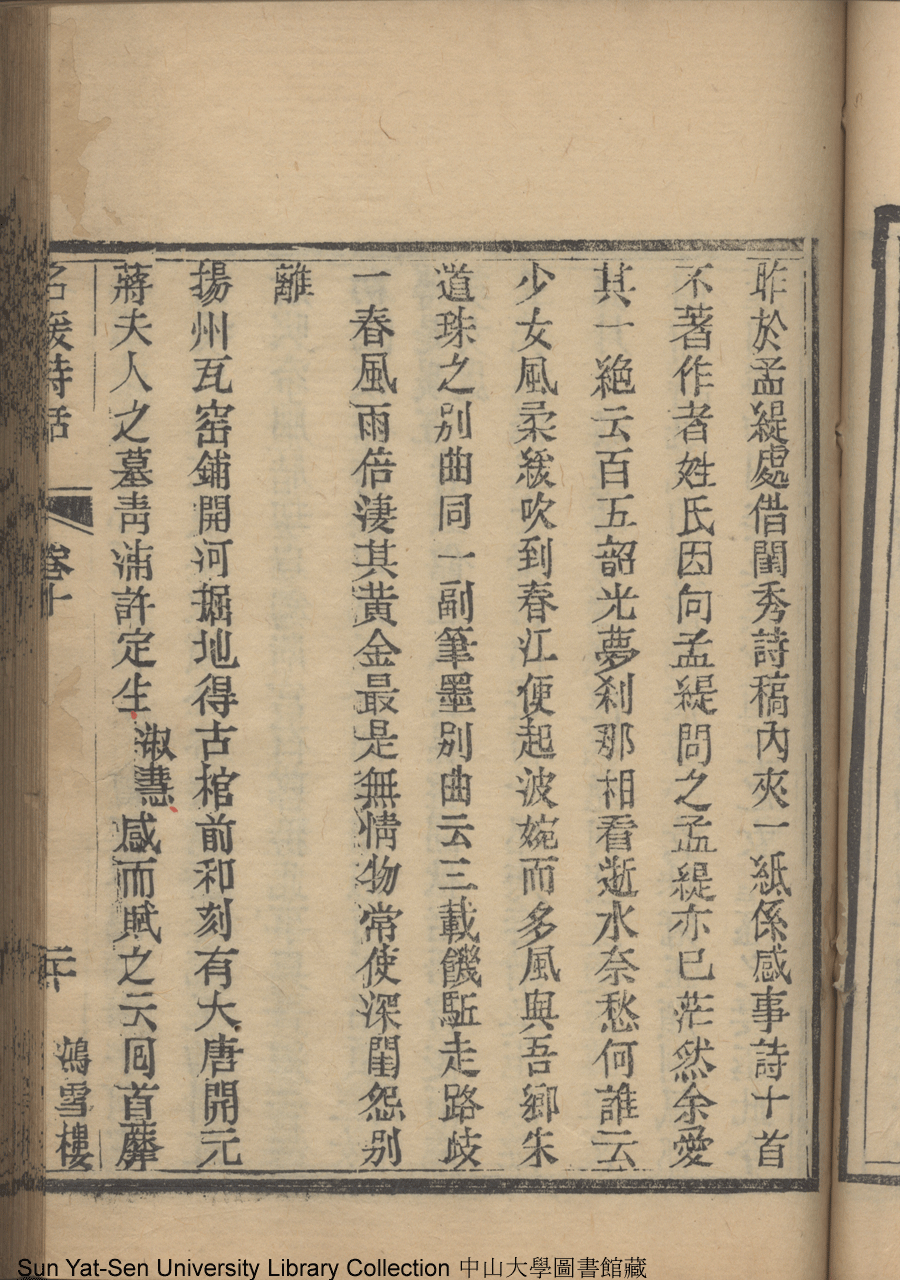 昨於孟緹處借閨秀詩稿內夾一紙係感事詩十首
不著作者姓氏因向孟緹問之孟緹亦已茫然余愛
其一絶云百五韶光夢刹那相看逝水奈愁何誰云
少女風柔緩吹到春江便起波婉而多風與吾鄉朱
道珠之別曲同一副筆墨別曲云三載饑駈走路歧
一春風雨倍淒其黃金最是無情物常使深閨怨別
離
揚州瓦窑鋪開河掘地得古棺前和刻有大唐開元
蔣夫人之墓靑浦許定生淑慧感而賦之云回首薤
名媛詩話 卷十 二十 鴻雪樓
Sun Yat-Sen University Library Collection 中山大學圖書館藏